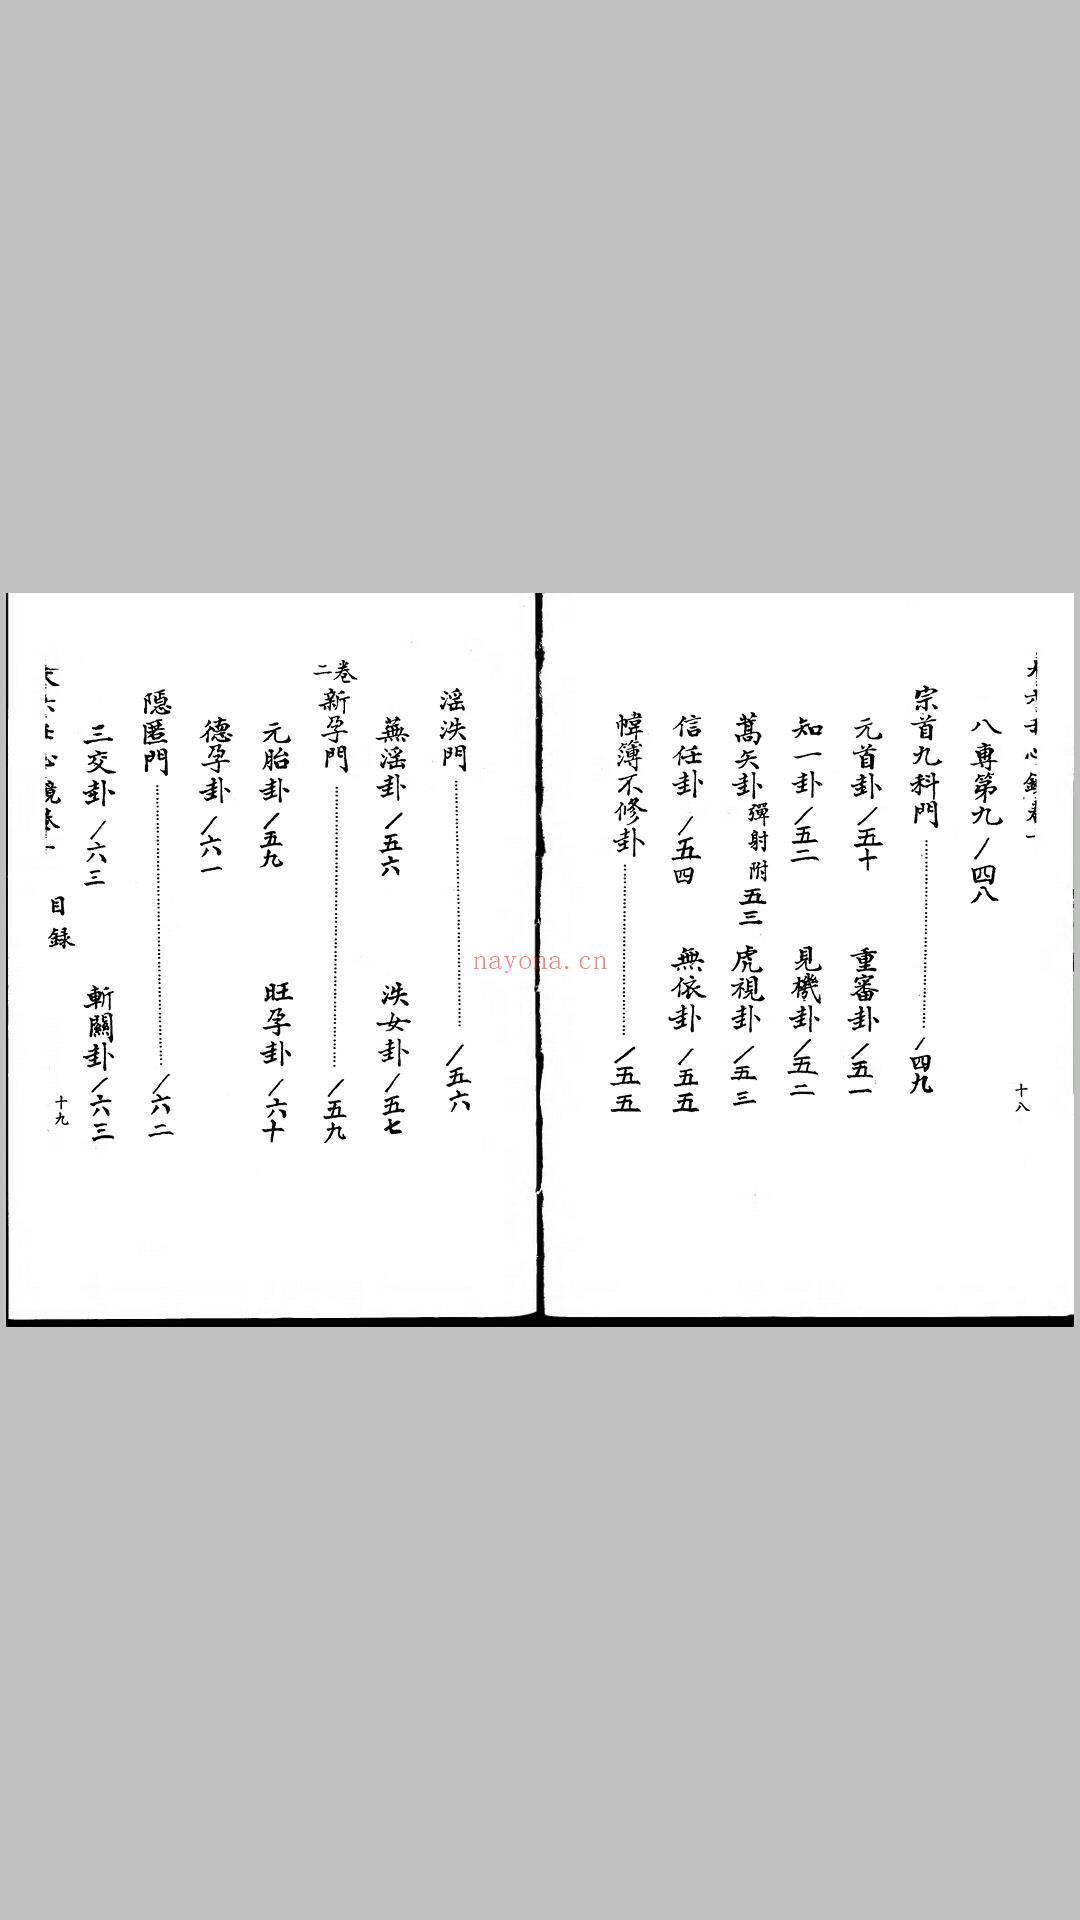 八專第九/四八
宗首九科門……/四九
元首卦/五十 重審卦/五一
知一卦/五二 見機卦/五二
蒿矢卦彈射附五三 虎視卦/五三
信任卦/五四 無依卦/五五
幃簿不修卦……/五五
十八
淫泆門……/五六
蕪淫卦/五六 泆女卦/五七
卷二
新孕門……/五九
元胎卦/五九 旺孕卦/六十
德孕卦/六一
隱匿門……/六二
三交卦/六三 斬關卦/六三
心鏡卷一 目錄 十九
nayona.cn